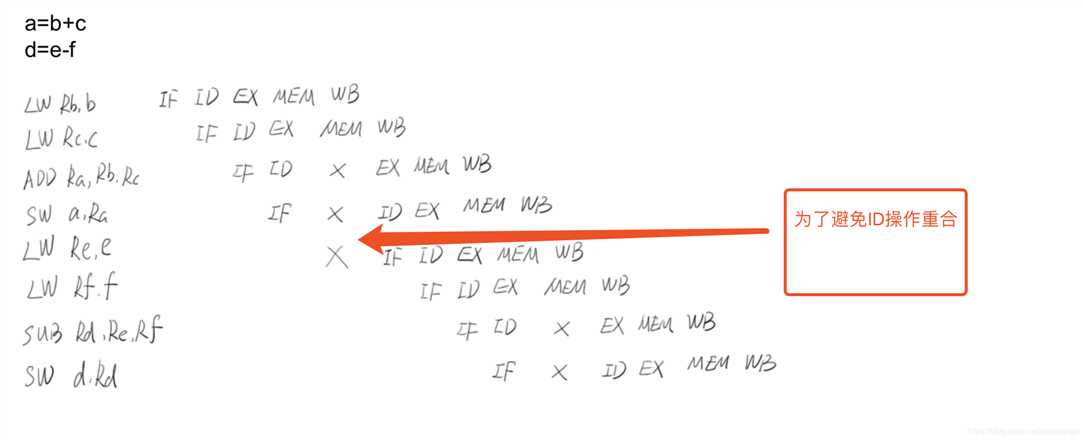 a=b+c
d=e-f
LW Rb,b IF ID EX MEM WB
LW Rc.c IF ID EX MEM WB
ADD Ra,Rb.Rc IF ID X EX MEM WB
SW a,Ra IF X ID EX MEM WB
LW Re,e X IF ID EX MEM WB
LW Rf.f IF ID EX MEM WB
SUB Rd,Re,Rf IF ID X EX MEM WB
SW d,Rd IF X ID EX MEM WB
为了避免ID操作重合